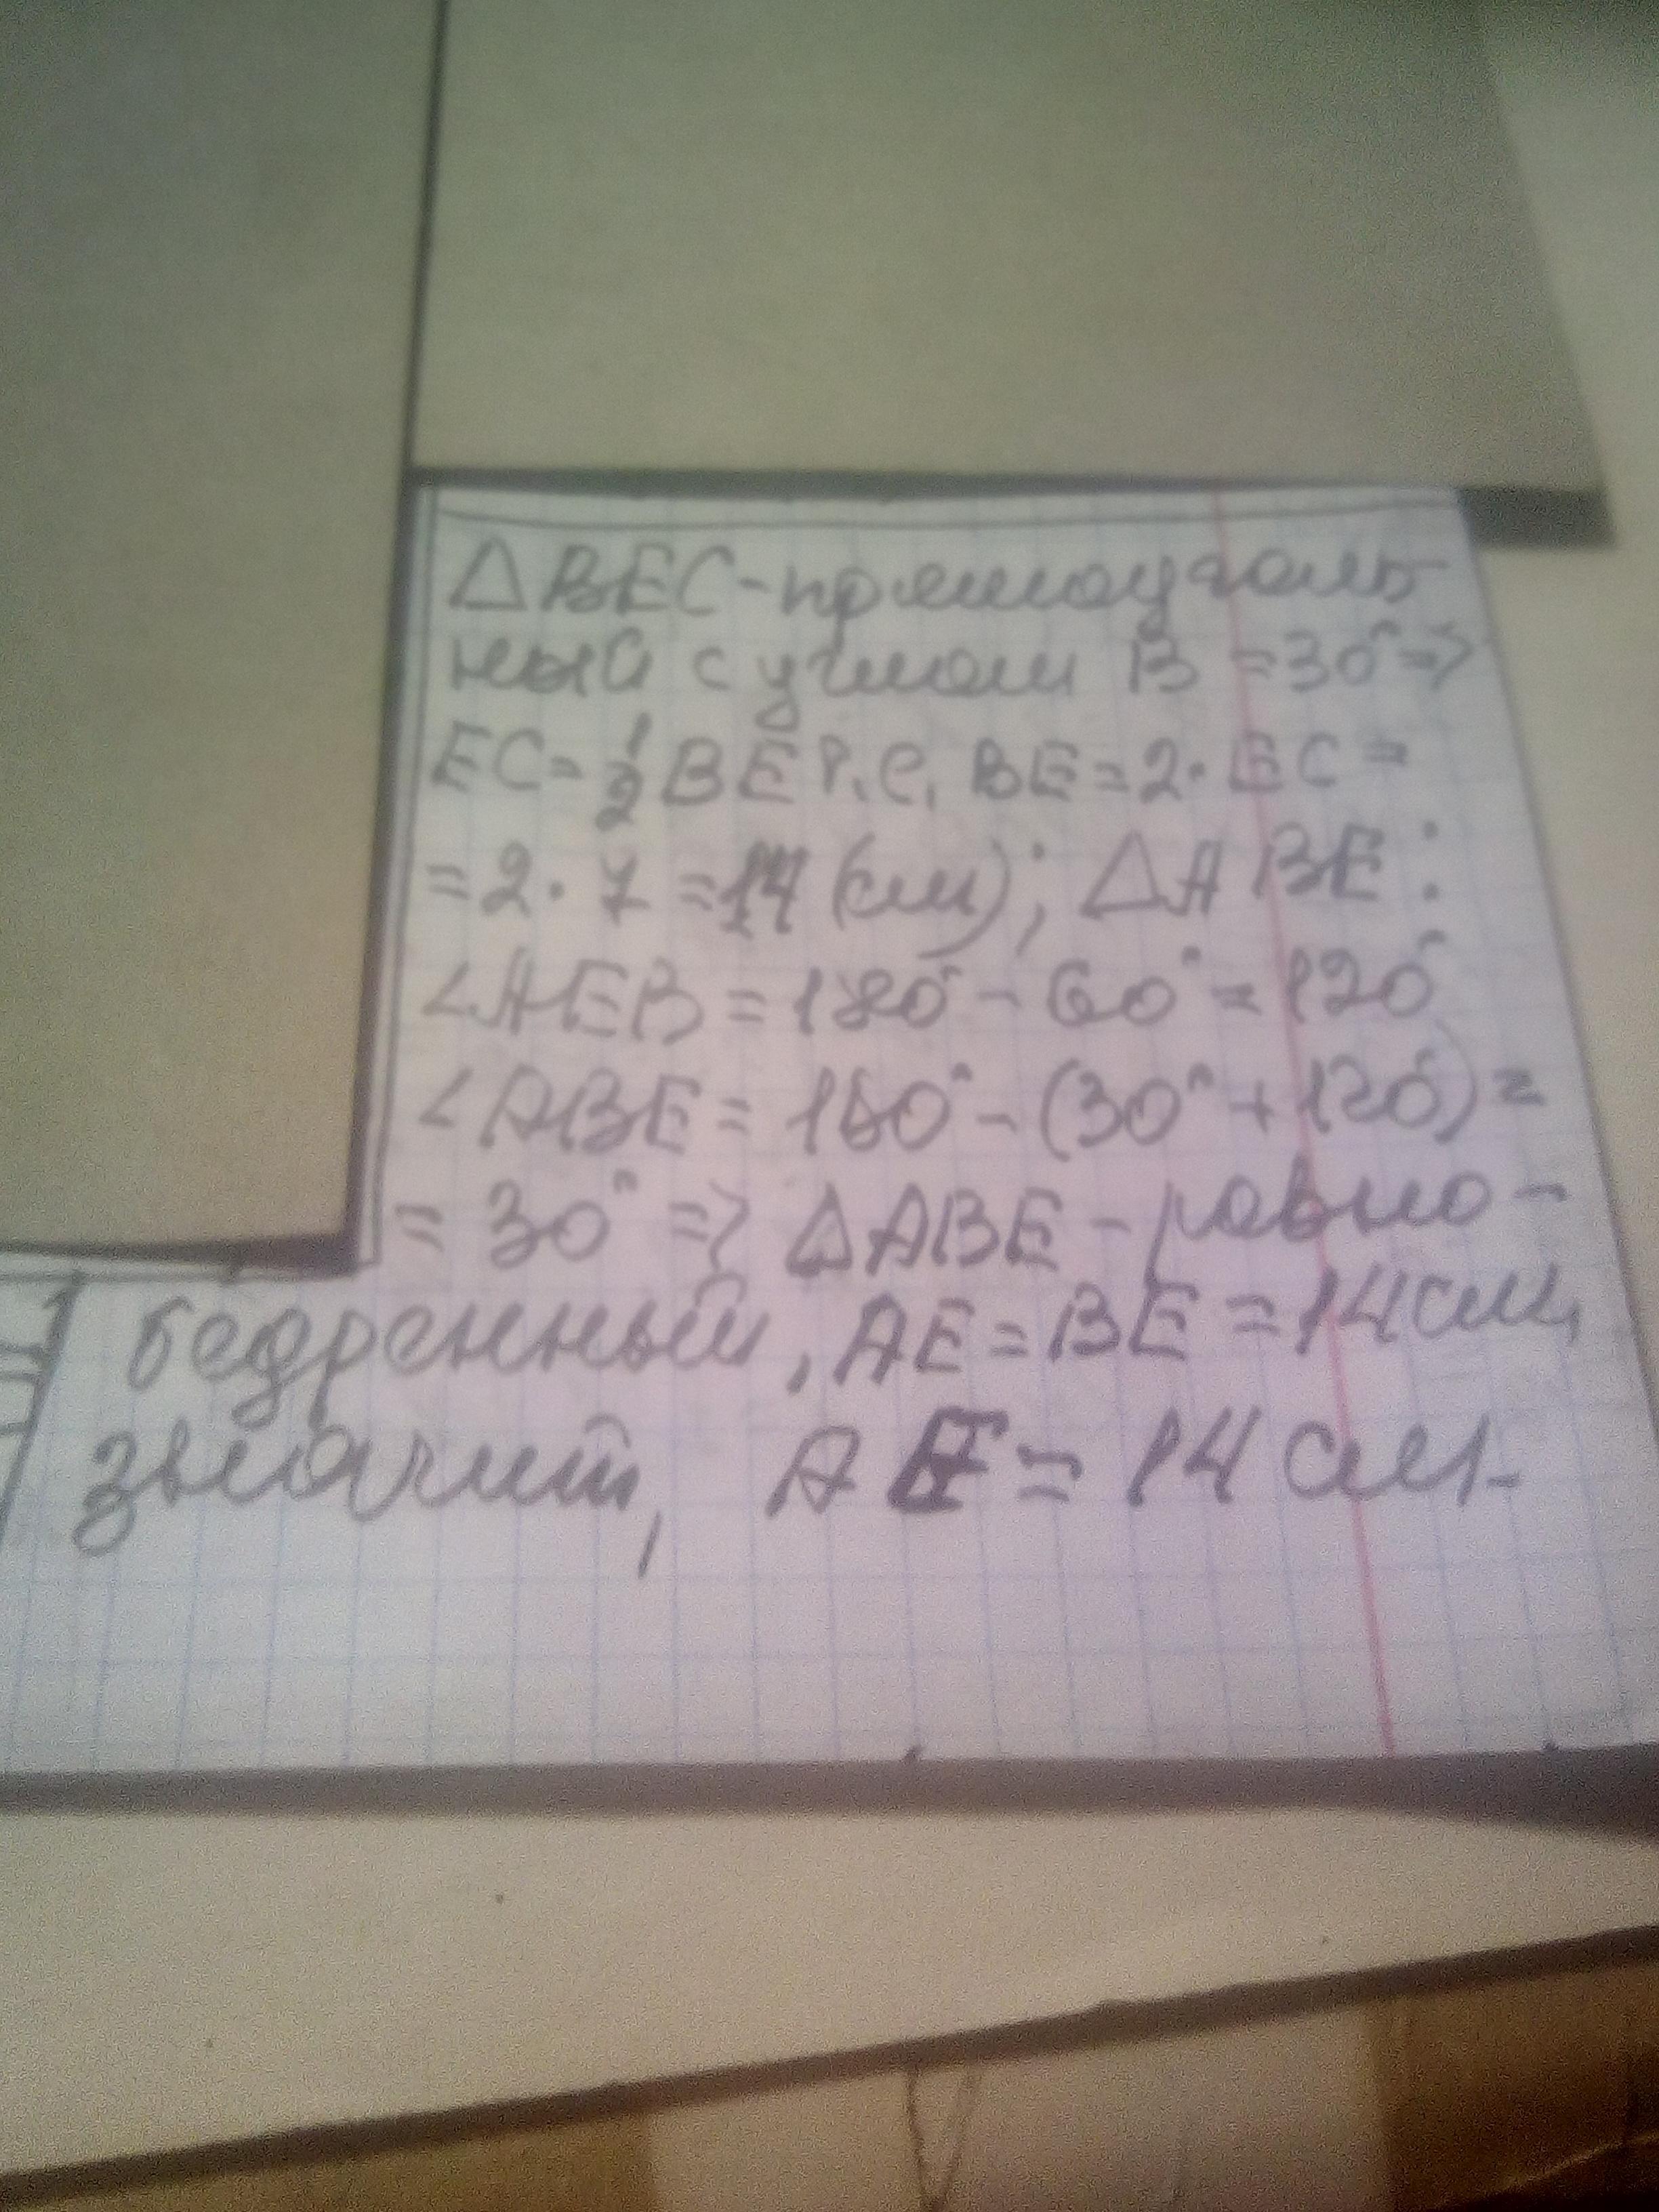 △BEC-прямоуголь-
ный с углом B =30°=>
EC= 1/2 BE т.е. BE=2·EC=
=2·7=14(см); △ABE:
<AEB=180°-60°=120°
<ABE=180°-(30°+120°)=
=30° => △ABE-равно-
бедренный, AE=BE=14см,
значит, AE=14см.